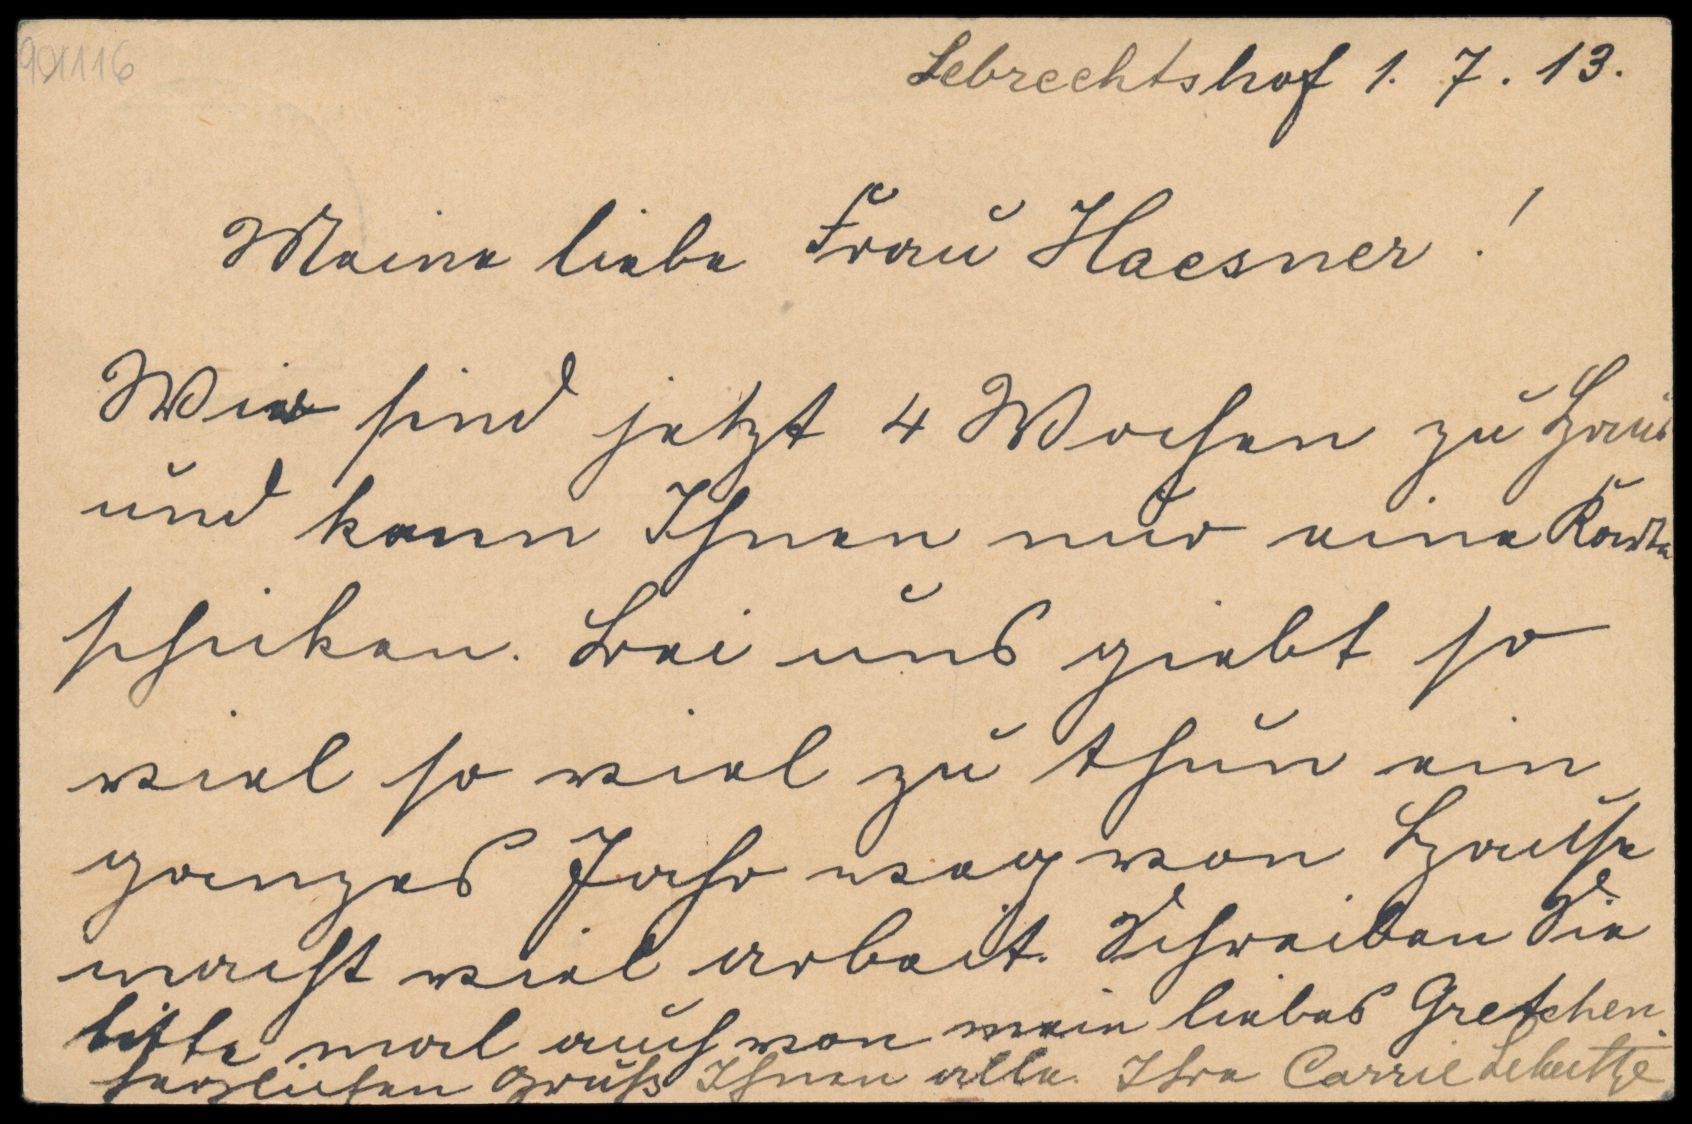 90X116
Lebrechtshof 1. 7. 13.
Meine liebe Frau Haesner!
Wir sind jetzt 4 Wochen zu Haus
und kann Ihnen nur eine Karte
schiken. Bei uns giebt so
viel so viel zu thun ein
ganzes Jahr weg von Hause
macht viel arbeit. Schreiben Sie
bitte mal auch von mein liebes Gretchen.
herzlichen Gruß Ihnen alle. Ihre Carrie